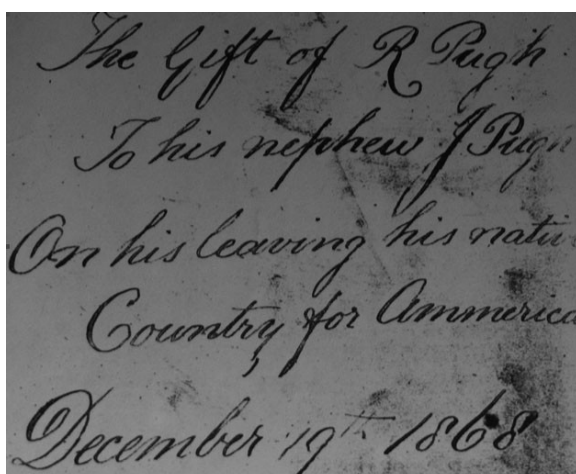 The Gift of R Pugh
To his nephew J Pugh
On his leaving his nativ
Country for Ammerica
December 19th 1868